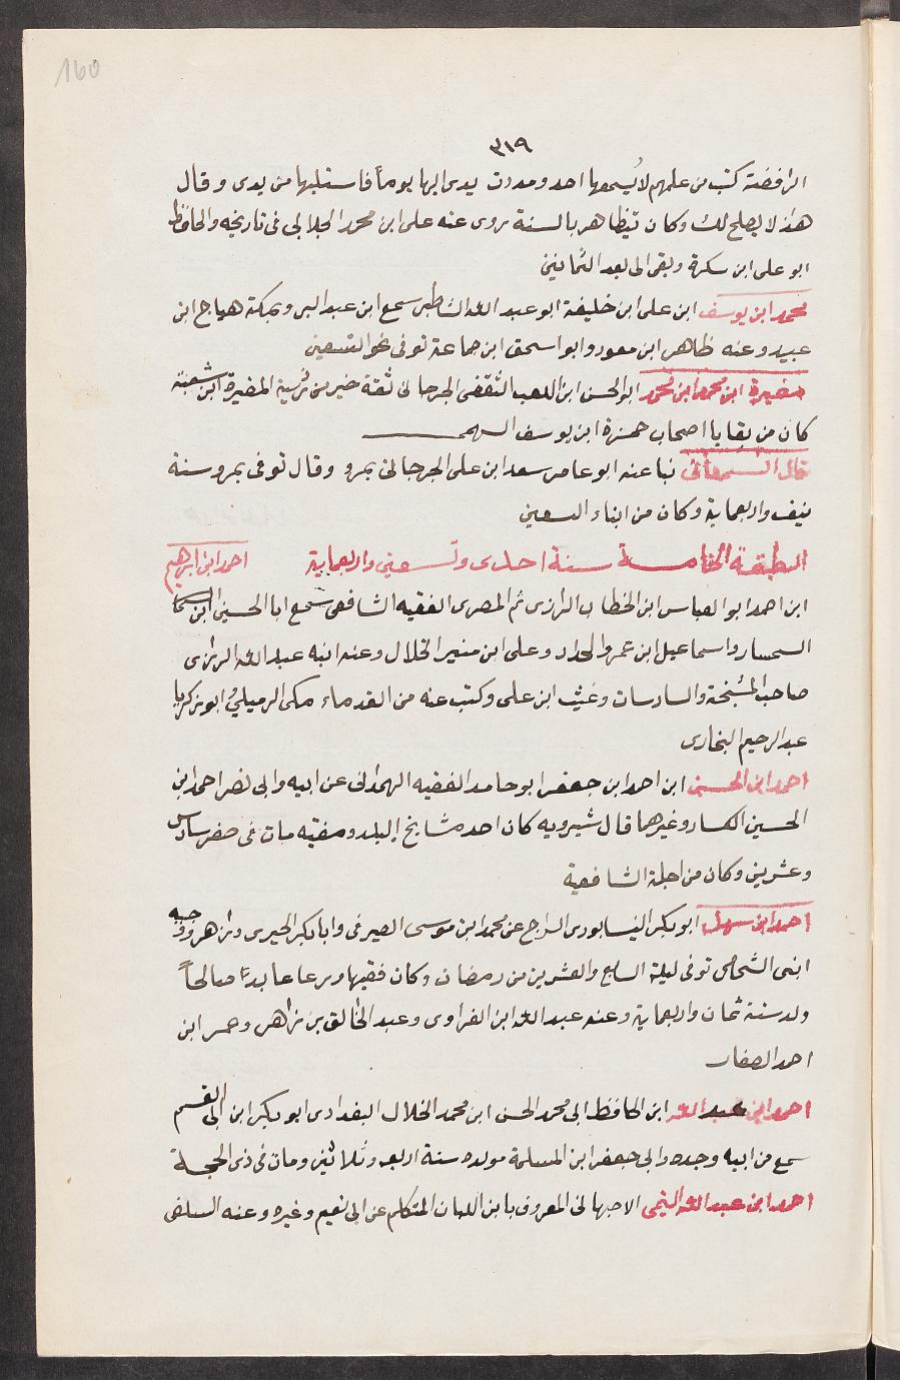 160
٣١٩
الرافضة كتب من علمهم لا يسمعها احد ومددت يدى اليها يوماً فاستلبها من يدى وقال
هذا لا يصلح لك وكان يتظاهر بالسنة روى عنه على ابن محمد الجلابى فى تاريخه والحافظ
ابو على ابن سكرة وبقى الى بعد الثمانين
محمد ابن يوسف ابن على ابن خليفة ابو عبد الله الشاطبى سمع ابن عبد البر وبمكة هياج ابن
عبيد وعنه طاهر ابن معوز وابو اسحق ابن جماعة توفى نحو التسعين
مغيرة ابن محمد ابن محمد ابو الحسن ابن الثقفى الجرجانى ثقة خير من ذرية المغيرة ابن شعبة
كان من بقايا اصحاب حمزة ابن يوسف السهمى
قال السمعانى نبا عنه ابو عامر سعد ابن على الجرجانى بمرو وقال توفى بمرو سنة
نيف واربعماية وكان من ابناء السبعين
الطبقة الخامسة سنة احدى وتسعين واربعماية احمد ابن ابرهيم
ابن احمد ابو العباس ابن الخطاب الرازى ثم المصرى الفقيه الشافعى سمع ابا الحسين ابن السما
السمسار واسماعيل ابن عمرو الحداد وعلى ابن منير الخلال وعنه ابنه عبد الله الرازى
صاحب المشيخة والسادسات وغيث ابن على وكتب عنه من القدماء مكى الرميلى وابو زكريا
عبد الرحيم البخارى
احمد ابن الحسين ابن احمد ابن جعفر ابو حامد الفقيه الهمدانى عن ابيه وابى نصر احمد ابن
الحسين الكسار وغيرهما قال شيرويه كان احد مشايخ البلد ومفتيه مات فى صفر سادس
وعشرين وكان من اجلة الشافعية
احمد ابن سهل ابو بكر النيسابورى السراج عن محمد ابن موسى الصيرفى وابا بكر الحيرى وزاهر ووجيه
ابنى الشحامى توفى ليلة السابع والعشرين من رمضان وكان فقيها ورعا عابداً صالحاً
ولد سنة ثمان واربعماية وعنه عبد الله ابن الفراوى وعبد الخالق بن زاهر وعمر ابن
احمد الصفار
احمد ابن عبد الله ابن الحافظ ابى محمد الحسن ابن محمد الخلال البغدادى ابو بكر ابن ابى القسم
سمع من ابيه وجده وابى جعفر ابن المسلمة مولده سنة اربع وثلاثين ومات فى ذى الحجة
احمد ابن عبد الله التيمى الاصبهانى المعروف بابن اللبان المتكلم عن ابى نعيم وغيره وعنه السلفى